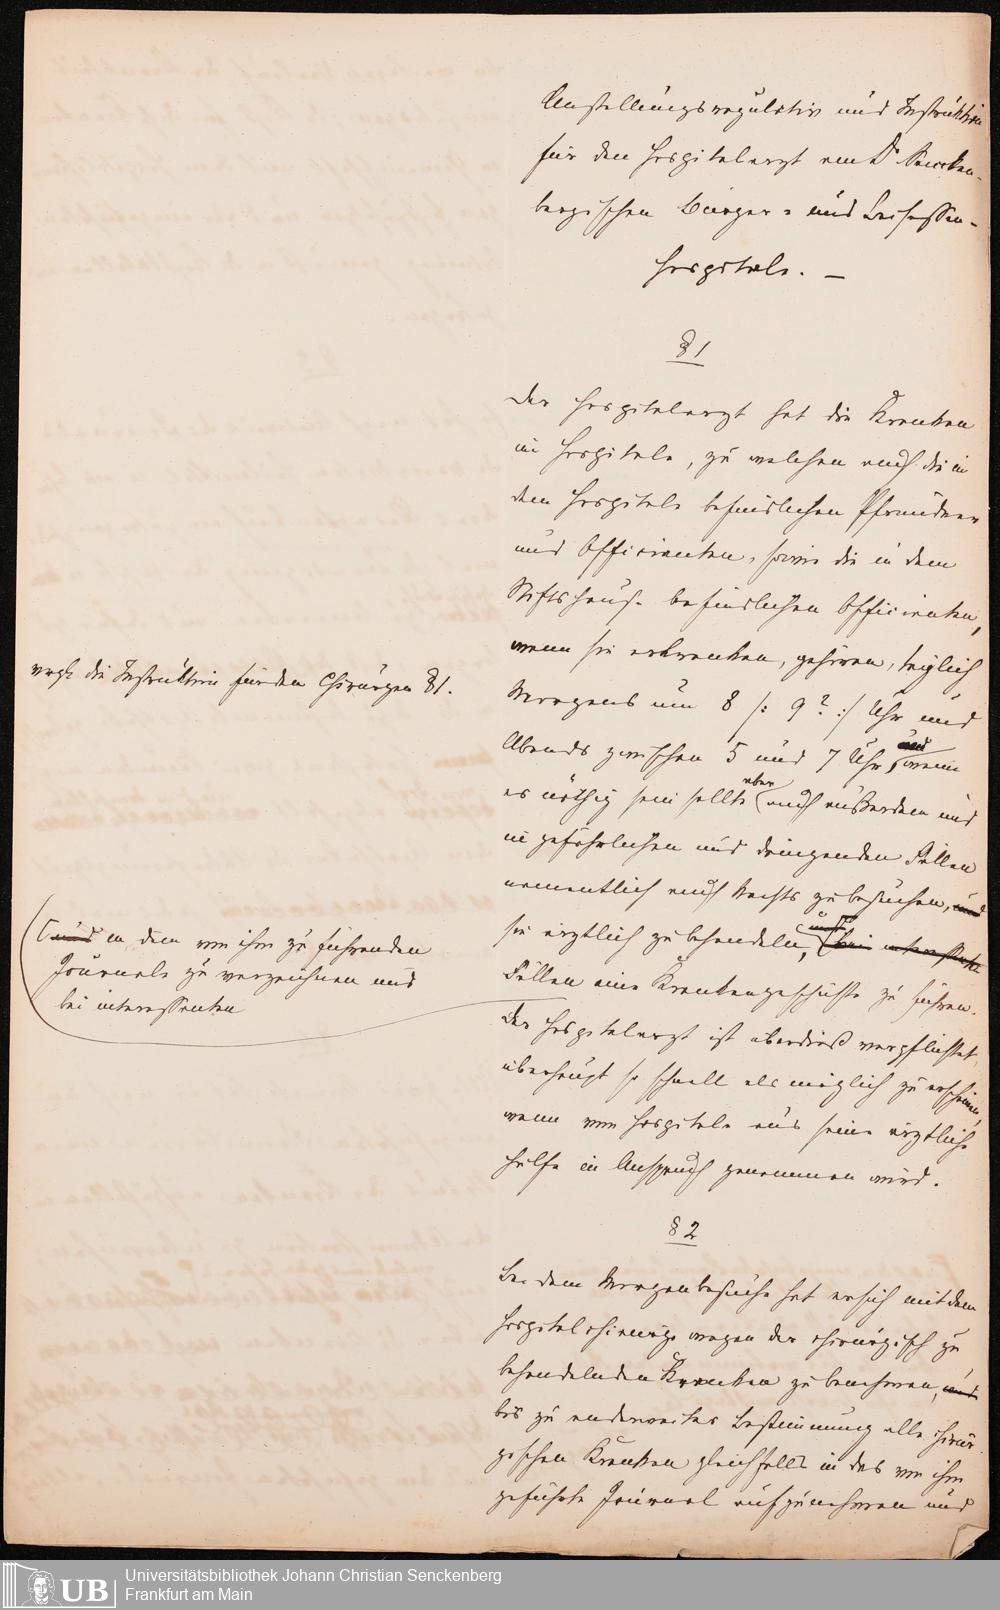 Anstellungsregulativ und Instruktion
für den Hospitalarzt am Dr Sencken-
bergischen Bürger- und Beisassen-
hospitale. —
§ 1
Der Hospitalarzt hat die Kranken
im Hospitale, zu welchen auch die in
dem Hospitale befindlichen Pfründner
und Officianten, sowie die in dem
Stiftshause befindlichen Officianten,
wenn sie erkranken, gehören, täglich
Morgens um 8 /: 9? :/ Uhr und
Abends zwischen 5 und 7 Uhr, und wenn
es nöthig sein sollte aber auch außerdem und
in gefährlichen und dringenden Fällen
namentlich auch Nachts zu besuchen, und
sie ärztlich zu behandeln, und bei interessanten
Fällen eine Krankengeschichte zu führen.
Der Hospitalarzt ist überdieß verpflichtet,
überhaupt so schnell als möglich zu erscheinen,
wenn vom Hospitale aus seine ärztliche
Hülfe in Anspruch genommen wird.
§ 2
Bei dem Morgenbesuche hat er sich mit dem
Hospitalchirurgen wegen der chirurgisch zu
behandelnden Kranken zu benehmen, und
bis zu anderweiter Bestimmung alle chirur-
gischen Kranken gleichfalls in das von ihm
geführte Journal aufzunehmen und
vergl. die Instruktion für den Chirurgen § 1.
und in dem von ihm zu führenden
Journale zu verzeichnen und
bei interessanten
Universitätsbibliothek Johann Christian Senckenberg
Frankfurt am Main
UB